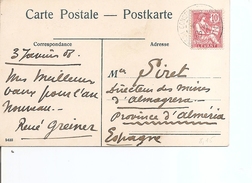 Carte Postale – Postkarte
Correspondance
Adresse
3 Janvier 08.
Mes Meilleurs
vœux pour l'an
Nouveau. –
René Greiner
Mr Siret
Directeur des mines
d'Almagrera
Province d'Alméria
Espagne
LEVANT